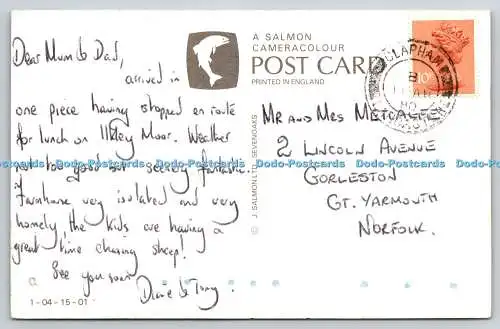 A SALMON
CAMERACOLOUR
POST CARD
PRINTED IN ENGLAND
CLAPHAM
Dear Mum & Dad,
arrived in
one piece having stopped en route
for lunch on Ilkley Moor. Weather
not too good but scenery fantastic.
Farmhouse very isolated and very
homely, the kids are having a
great time chasing sheep!
See you soon
Diane & Tony
1-04-15-01
© J. SALMON LTD., SEVENOAKS
Mr and Mrs Metcalfe
2 Lincoln Avenue
Gorleston
Gt. Yarmouth
Norfolk.
Dodo-Postcards Dodo-Postcards Dodo-Postcards Dodo-Postcards Dodo-Postcards